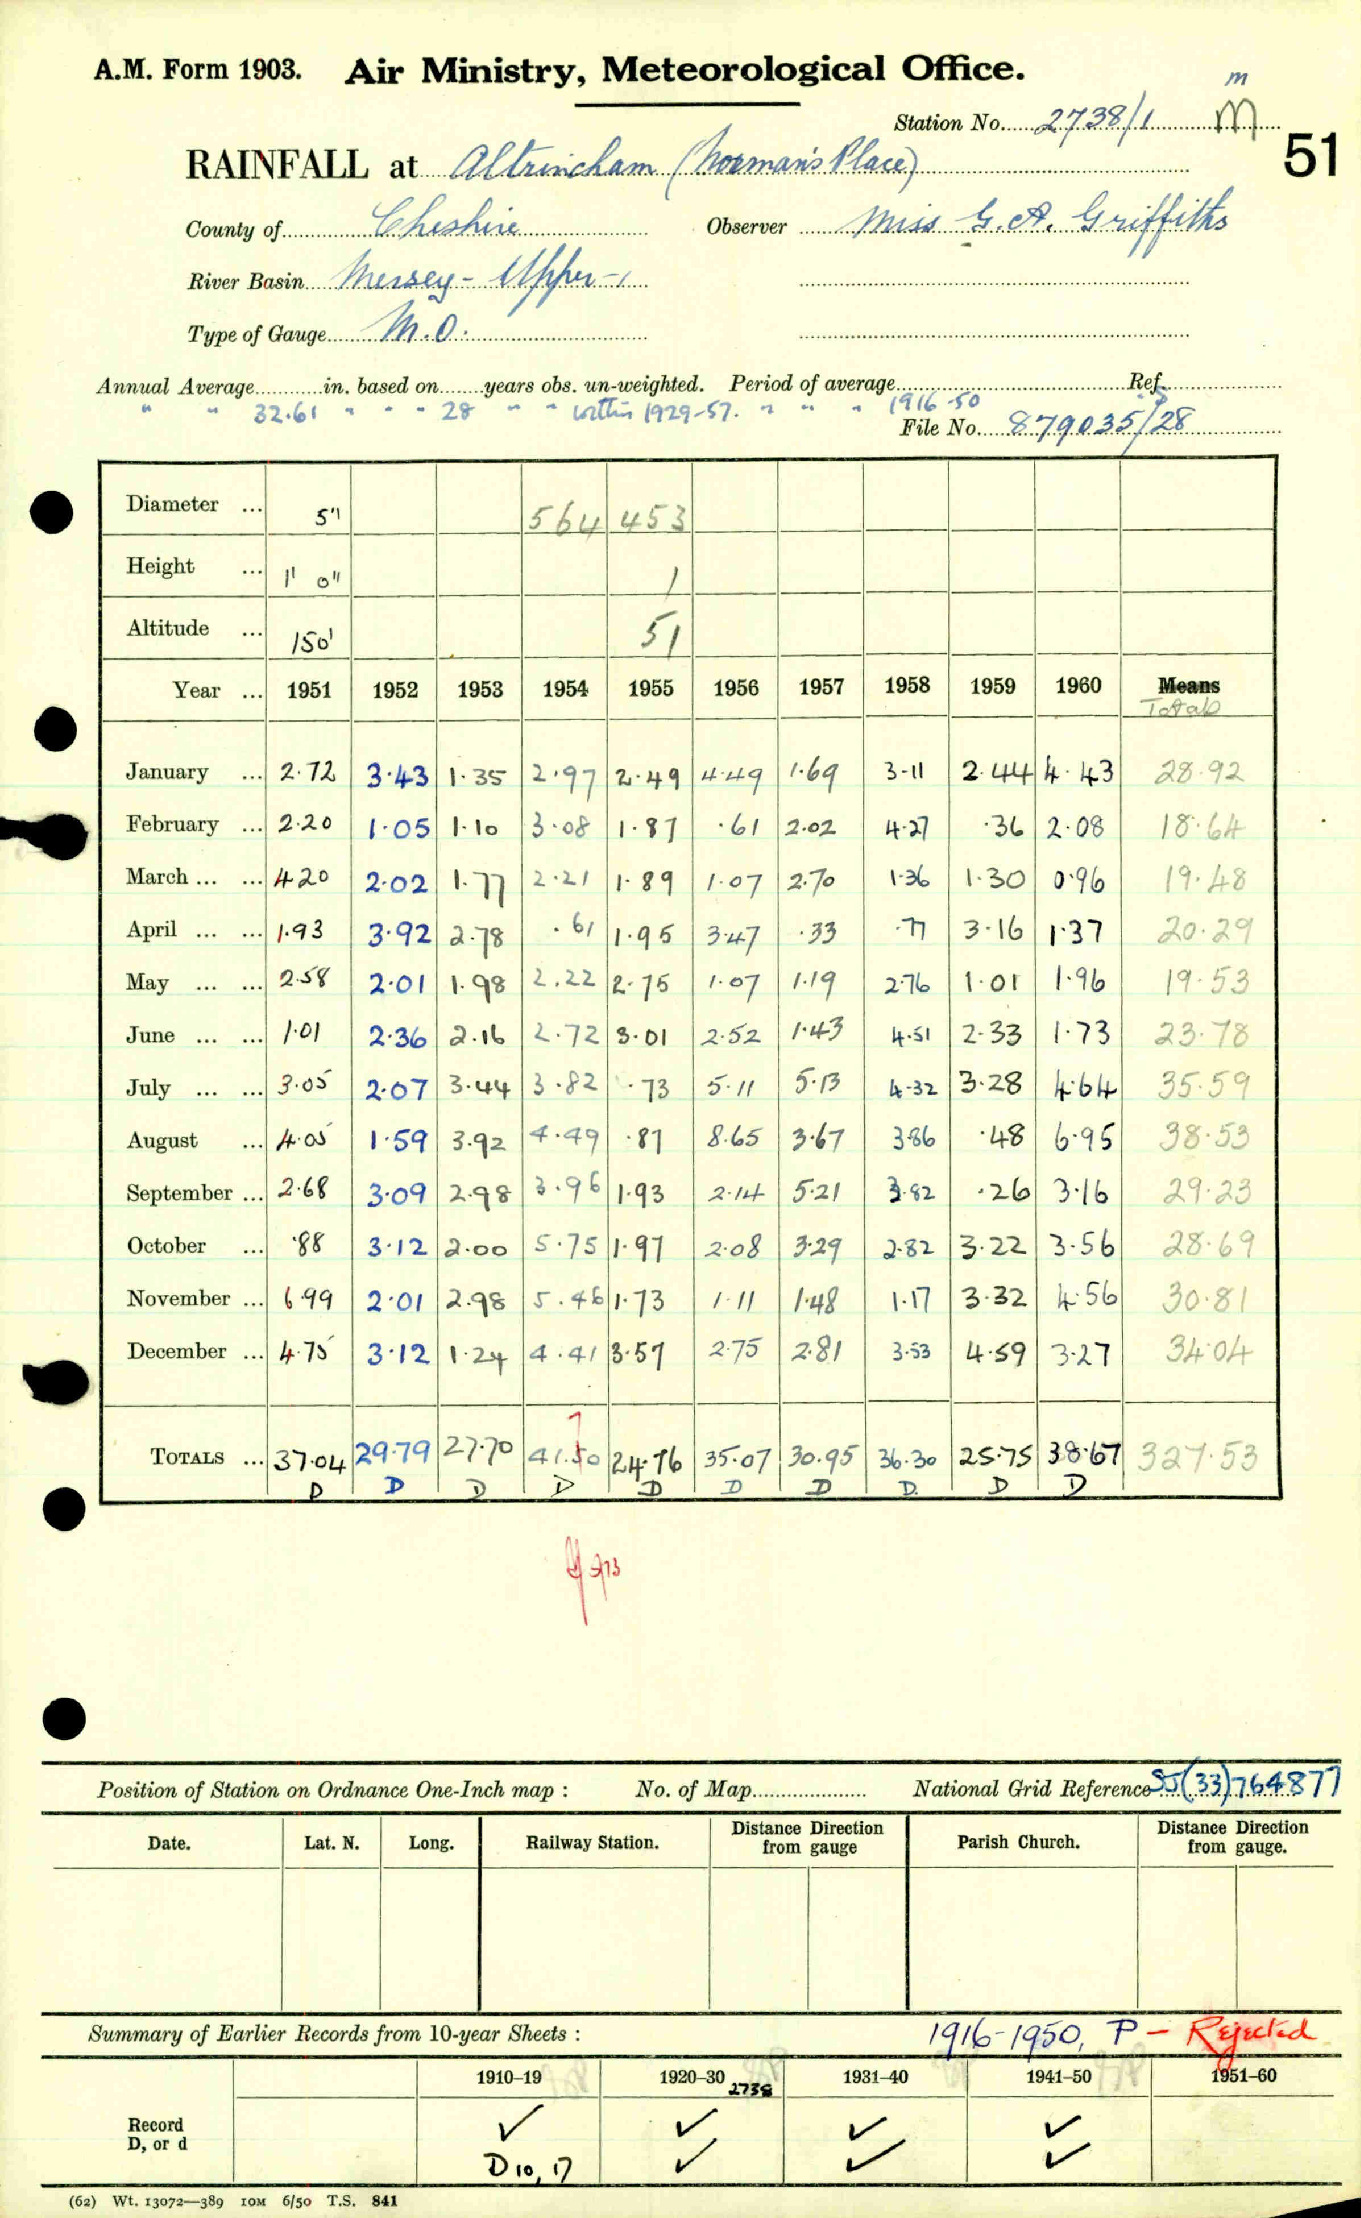 A.M. Form 1903. Air Ministry, Meteorological Office.
m
Station No. 2738/1 m
51
RAINFALL at Altrincham (Norman's Place)
County of Cheshire Observer Miss G. A. Griffiths
River Basin Mersey - Upper -
Type of Gauge M.O.
Annual Average............in. based on.......years obs. un-weighted. Period of average............Ref.
" " 32.61 " " " 28 " " within 1929-57. " " " 1916-50
File No. 879035/28
Diameter ... 5" 564 453
Height ... 1' 0" 1
Altitude ... 150' 51
Year ... 1951 1952 1953 1954 1955 1956 1957 1958 1959 1960 Means
Totals
January ... 2.72 3.43 1.35 2.97 2.49 4.49 1.69 3.11 2.44 4.43 28.92
February ... 2.20 1.05 1.10 3.08 1.87 .61 2.02 4.27 .36 2.08 18.64
March ... ... 4.20 2.02 1.77 2.21 1.89 1.07 2.70 1.36 1.30 0.96 19.48
April ... ... 1.93 3.92 2.78 .61 1.95 3.47 .33 .77 3.16 1.37 20.29
May ... ... 2.58 2.01 1.98 2.22 2.75 1.07 1.19 2.76 1.01 1.96 19.53
June ... ... 1.01 2.36 2.16 2.72 3.01 2.52 1.43 4.51 2.33 1.73 23.78
July ... ... 3.05 2.07 3.44 3.82 .73 5.11 5.13 4.32 3.28 4.64 35.59
August ... 4.05 1.59 3.92 4.49 .87 8.65 3.67 3.86 .48 6.95 38.53
September ... 2.68 3.09 2.98 3.96 1.93 2.14 5.21 3.82 .26 3.16 29.23
October ... .88 3.12 2.00 5.75 1.97 2.08 3.29 2.82 3.22 3.56 28.69
November ... 6.99 2.01 2.98 5.46 1.73 1.11 1.48 1.17 3.32 4.56 30.81
December ... 4.75 3.12 1.24 4.41 3.57 2.75 2.81 3.53 4.59 3.27 34.04
7
TOTALS ... 37.04 29.79 27.70 41.50 24.76 35.07 30.95 36.30 25.75 38.67 327.53
D D D D D D D D. D D
Position of Station on Ordnance One-Inch map : No. of Map.................... National Grid Reference SJ(33)764877
Date. Lat. N. Long. Railway Station. Distance Direction from gauge Parish Church. Distance Direction from gauge.
Summary of Earlier Records from 10-year Sheets : 1916-1950, P - Rejected
1910–19 1920–30 1931–40 1941–50 1951–60
2738
Record
D, or d
✓ ✓ ✓ ✓
D 10, 17 ✓ ✓ ✓
(62) Wt. 13072—389 10M 6/50 T.S. 841